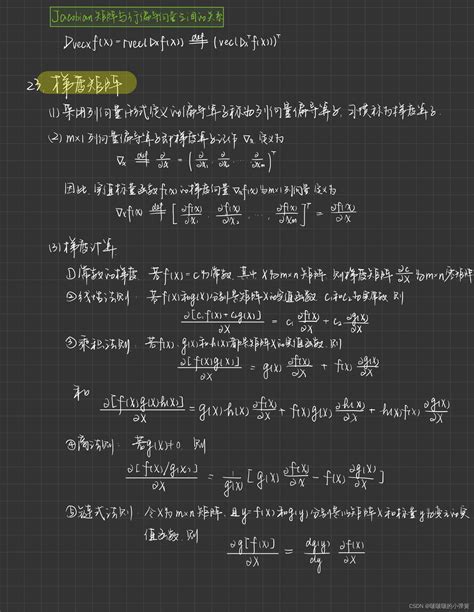 Jacobian矩阵与行偏导向量之间的关系
Dvecxf(X) = rvec(Dxf(X)) ≝ (vec(Dxᵀf(X)))ᵀ
23. 梯度矩阵
(1) 采用列向量形式定义的偏导算子称为列向量偏导算子, 习惯称为梯度算子.
(2) m×1列向量偏导算子即梯度算子记作 ∇x 定义为
∇x ≝ ∂/∂x = (∂/∂x₁, ∂/∂x₂, ... ∂/∂xm)ᵀ
因此, 实值标量函数f(x)的梯度向量∇xf(x)为m×1列向量 定义为
∇xf(x) ≝ [∂f(x)/∂x₁, ∂f(x)/∂x₂, ..., ∂f(x)/∂xm]ᵀ = ∂f(x)/∂x
(3) 梯度计算
①常数的梯度 若f(X)=c为常数, 其中X为m×n矩阵 则梯度矩阵 ∂c/∂X 为m×n零矩阵
②线性法则 若f(X)和g(X)分别是矩阵X的实值函数 c₁和c₂为实常数 则
∂[c₁f(X)+c₂g(X)]/∂X = c₁ ∂f(X)/∂X + c₂ ∂g(X)/∂X
③乘积法则 若f(X), g(X)和h(X)都是矩阵X的实值函数 则
∂[f(X)g(X)]/∂X = g(X) ∂f(X)/∂X + f(X) ∂g(X)/∂X
和
∂[f(X)g(X)h(X)]/∂X = g(X)h(X) ∂f(X)/∂X + f(X)g(X) ∂h(X)/∂X + h(X)f(X) ∂g(X)/∂X
④商法则 若g(X)≠0 则
∂[f(X)/g(X)]/∂X = 1/g²(X) [g(X) ∂f(X)/∂X - f(X) ∂g(X)/∂X]
⑤链式法则 令X为m×n矩阵, 且y=f(X)和g(y)分别是以矩阵X和标量y为变元的实
值函数, 则
∂g[f(X)]/∂X = dg(y)/dy ∂f(X)/∂X